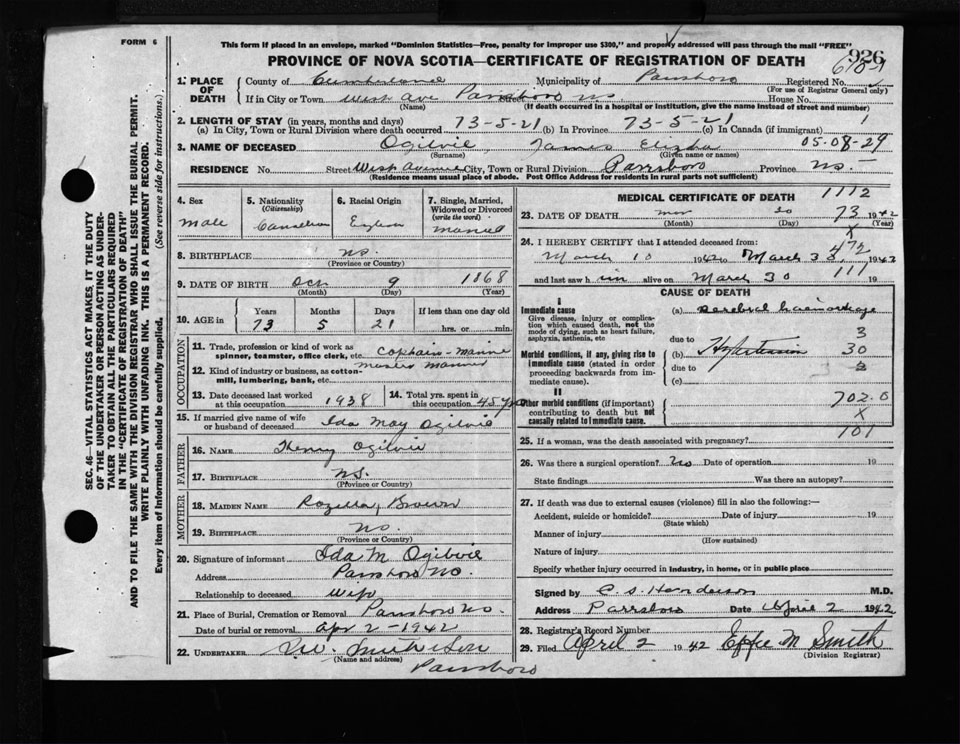 FORM 6
This form if placed in an envelope, marked "Dominion Statistics—Free, penalty for improper use $300," and properly addressed will pass through the mail "FREE"
926
PROVINCE OF NOVA SCOTIA—CERTIFICATE OF REGISTRATION OF DEATH
1. PLACE OF DEATH
County of Cumberland Municipality of Parrsboro Registered No.
(For use of Registrar General only)
If in City or Town West Ave Parrsboro NS Street House No.
(Name) (If death occurred in a hospital or institution, give the name instead of street and number)
2. LENGTH OF STAY (in years, months and days)
(a) In City, Town or Rural Division where death occurred 73-5-21 (b) In Province 73-5-21 (c) In Canada (if immigrant) 1
3. NAME OF DECEASED Ogilvie, James 05-08-29
(Surname) (Given name or names)
RESIDENCE No. Street West Avenue City, Town or Rural Division Parrsboro Province NS.
(Residence means usual place of abode. Post Office Address for residents in rural parts not sufficient)
4. Sex
Male
5. Nationality (Citizenship)
Canadian
6. Racial Origin
English
7. Single, Married, Widowed or Divorced (write the word)
Married
8. BIRTHPLACE NS.
(Province or Country)
9. DATE OF BIRTH Oct 9 1868
(Month) (Day) (Year)
10. AGE in
Years Months Days If less than one day old
73 5 21 hrs. or min.
OCCUPATION
11. Trade, profession or kind of work as spinner, teamster, office clerk, etc. Captain-Marine
12. Kind of industry or business, as cotton-mill, lumbering, bank, etc. Master Mariner
13. Date deceased last worked at this occupation 1938
14. Total yrs. spent in this occupation 45 yrs
15. If married give name of wife or husband of deceased Ida May Ogilvie
FATHER
16. NAME Henry Ogilvie
17. BIRTHPLACE NS.
(Province or Country)
MOTHER
18. MAIDEN NAME Brown
19. BIRTHPLACE NS.
(Province or Country)
20. Signature of informant Ida M Ogilvie
Address Parrsboro NS.
Relationship to deceased Wife
21. Place of Burial, Cremation or Removal Parrsboro NS.
Date of burial or removal Apr 2-1942
22. UNDERTAKER
(Name and address)
Parrsboro
MEDICAL CERTIFICATE OF DEATH 1112
23. DATE OF DEATH Mar 30 73 1942
(Month) (Day) X
24. I HEREBY CERTIFY that I attended deceased from: 472
March 10 1942 to March 1942
and last saw h im alive on March 30 111 19
CAUSE OF DEATH
I
Immediate cause
Give disease, injury or complication which caused death, not the mode of dying, such as heart failure, asphyxia, asthenia, etc
(a) cerebral haemorrhage
due to 3
Morbid conditions, if any, giving rise to immediate cause (stated in order proceeding backwards from immediate cause).
(b) Hypertension 30
due to 3
(c)
II
Other morbid conditions (if important) contributing to death but not causally related to immediate cause.
702.0
X
101
25. If a woman, was the death associated with pregnancy?
26. Was there a surgical operation? No Date of operation 19
State findings Was there an autopsy?
27. If death was due to external causes (violence) fill in also the following:—
Accident, suicide or homicide? Date of injury 19
(State which)
Manner of injury
(How sustained)
Nature of injury
Specify whether injury occurred in industry, in home, or in public place
Signed by C. S. Henderson M.D.
Address Parrsboro Date April 2 1942
28. Registrar's Record Number
29. Filed April 2 1942 Effie M Smith
(Division Registrar)
SEC. 46—VITAL STATISTICS ACT MAKES IT THE DUTY OF THE UNDERTAKER OR PERSON ACTING AS UNDERTAKER TO OBTAIN ALL THE PARTICULARS REQUIRED IN THE "CERTIFICATE OF REGISTRATION OF DEATH"
AND TO FILE THE SAME WITH THE DIVISION REGISTRAR WHO SHALL ISSUE THE BURIAL PERMIT.
WRITE PLAINLY WITH UNFADING INK. THIS IS A PERMANENT RECORD.
Every item of Information should be carefully supplied. (See reverse side for instructions.)